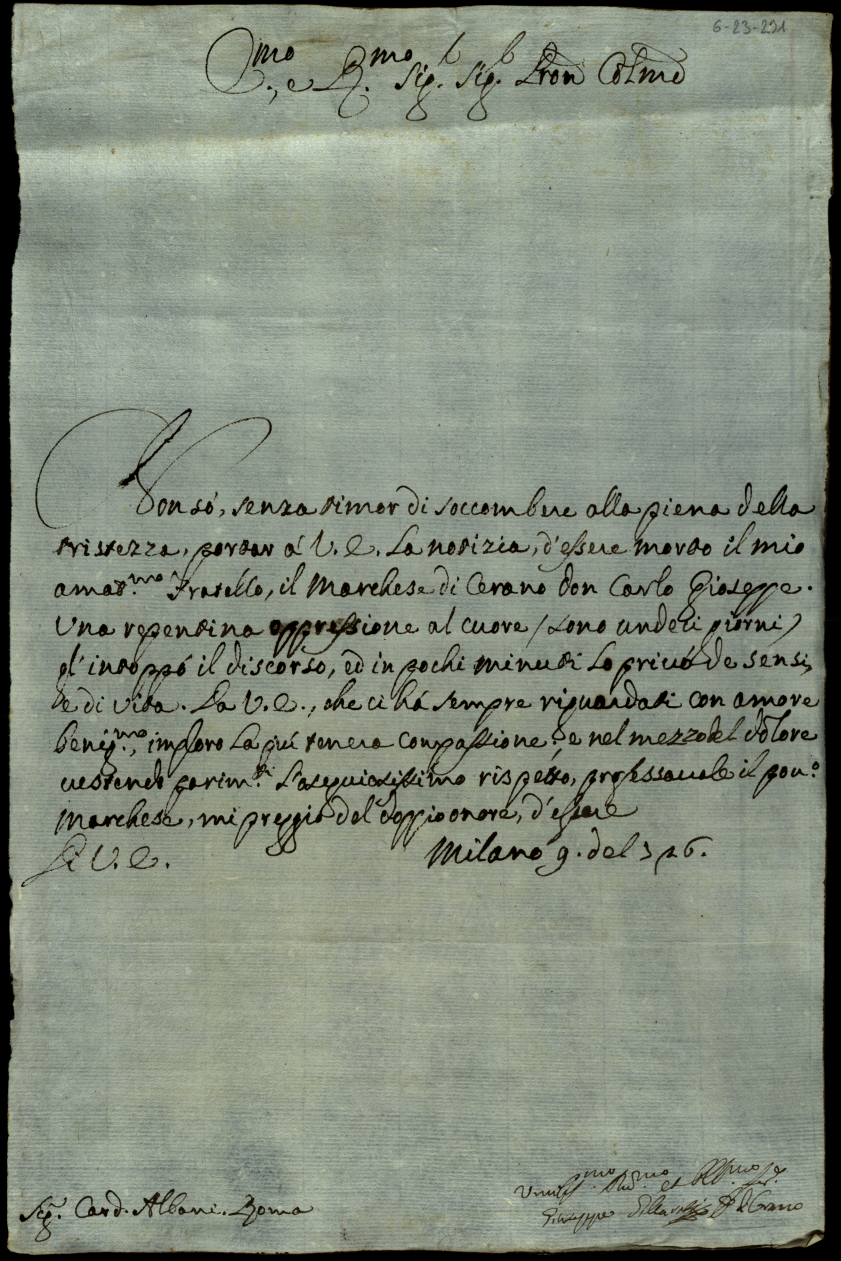 6-23-291
Em.mo, e R.mo Sig. Sig. Pron Colmo
Non só, senza timor di soccombere alla piena della
tristezza, portar á V. E. La notizia, d'essere morto il mio
amat.mo Fratello, il Marchese di Cerano don Carlo Gioseppe.
Una repentina oppressione al cuore /sono undeci giorni/
gl'intoppó il discorso, ed in pochi minuti Lo privó de sensi,
e di vita. Da V. E., che ci há sempre riguardati con amore
benig.mo, imploro La piú tenera compassione: e nel mezzo del dolore
uestendo parim.ti L'ossequiosissimo rispetto, professauole il pou.o
Marchese, mi preggio del doppio onore, d'essere
Di V. E. Milano 9. del
Sig. Card. Albani. Roma
Umiliss.mo et
Giuseppe